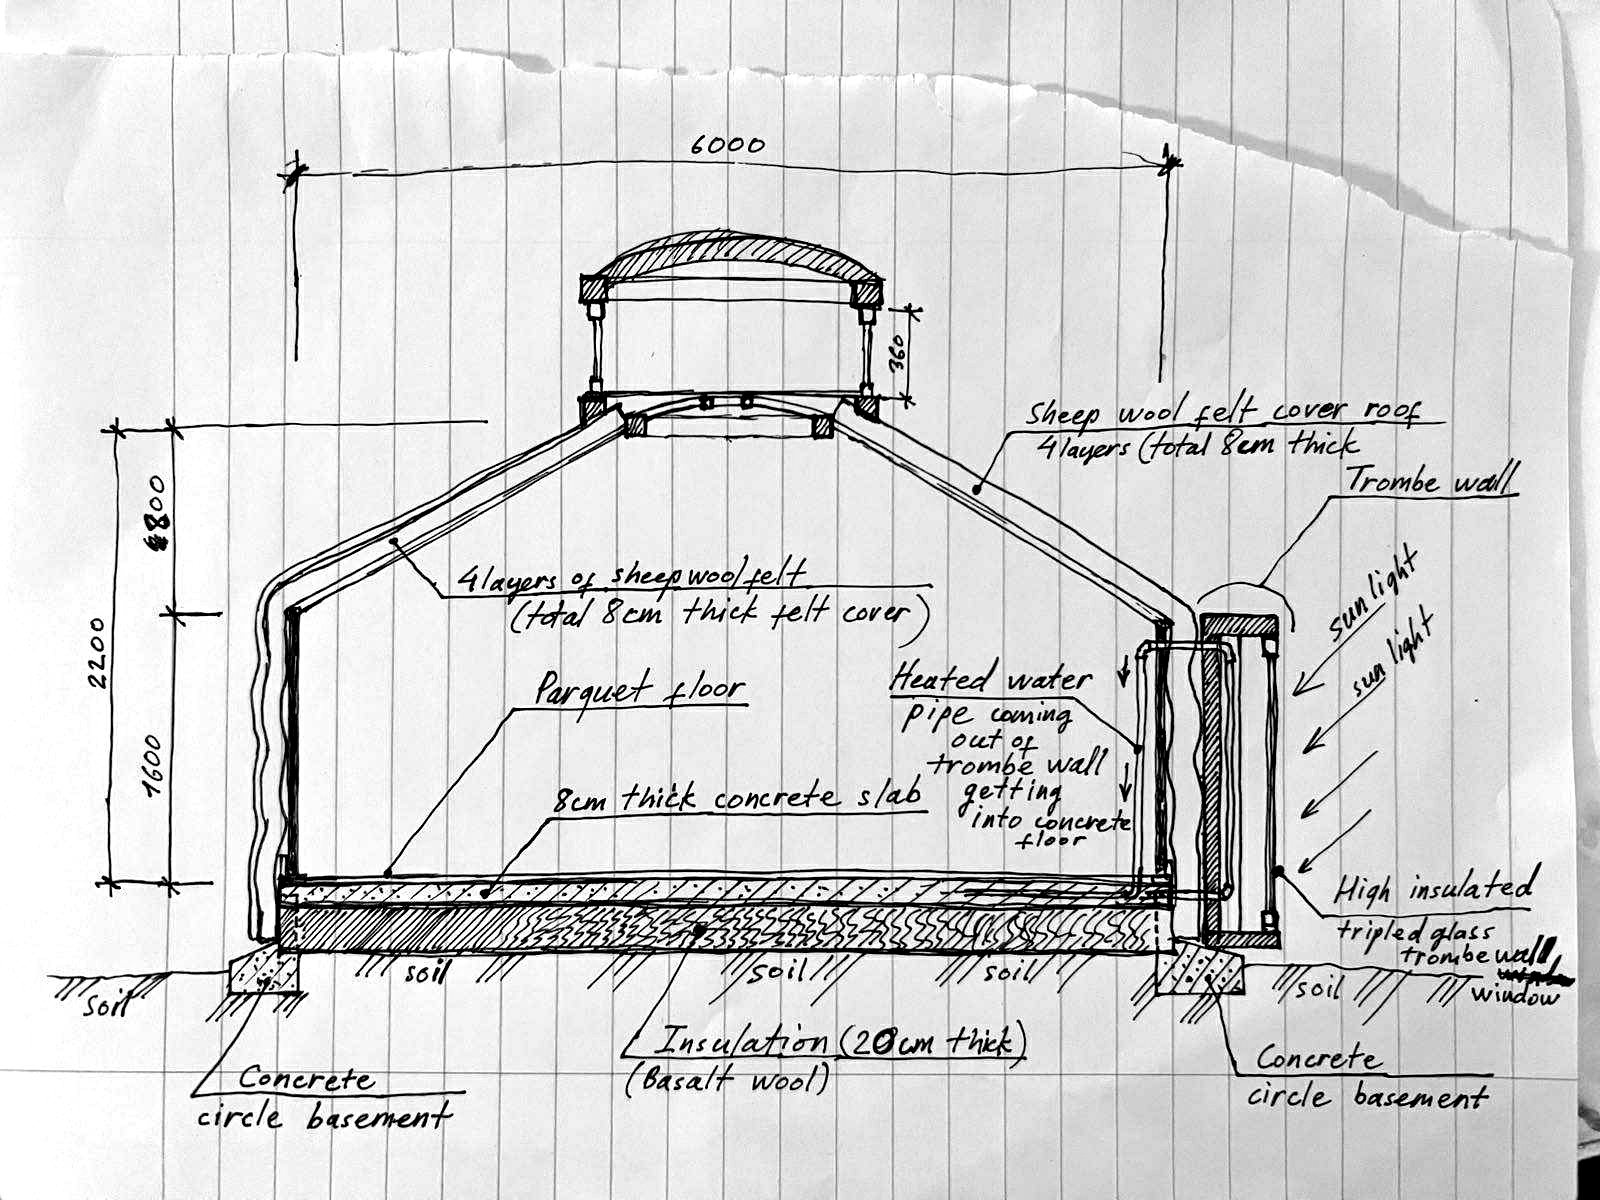 6000
360
Sheep wool felt cover roof
4 layers (total 8cm thick
Trombe wall
sun light
sun light
800
2200
1600
4 layers of sheep wool felt
(total 8cm thick felt cover)
Parquet floor
8cm thick concrete slab
Heated water
pipe coming
out of
trombe wall
getting
into concrete
floor
High insulated
tripled glass
trombe wall
window
soil
soil
soil
soil
soil
Insulation (20cm thick)
(Basalt wool)
Concrete
circle basement
Concrete
circle basement